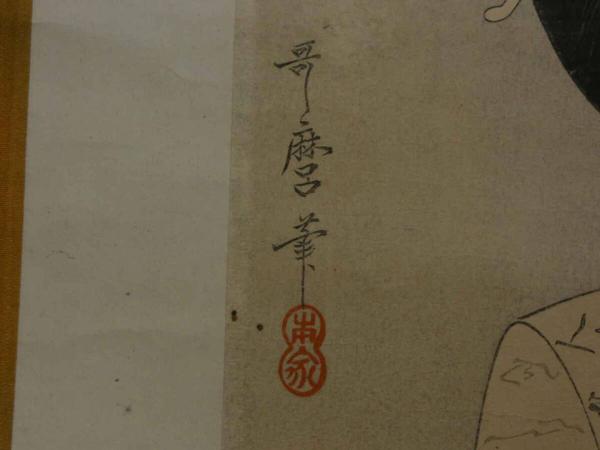 哥麿筆
本家